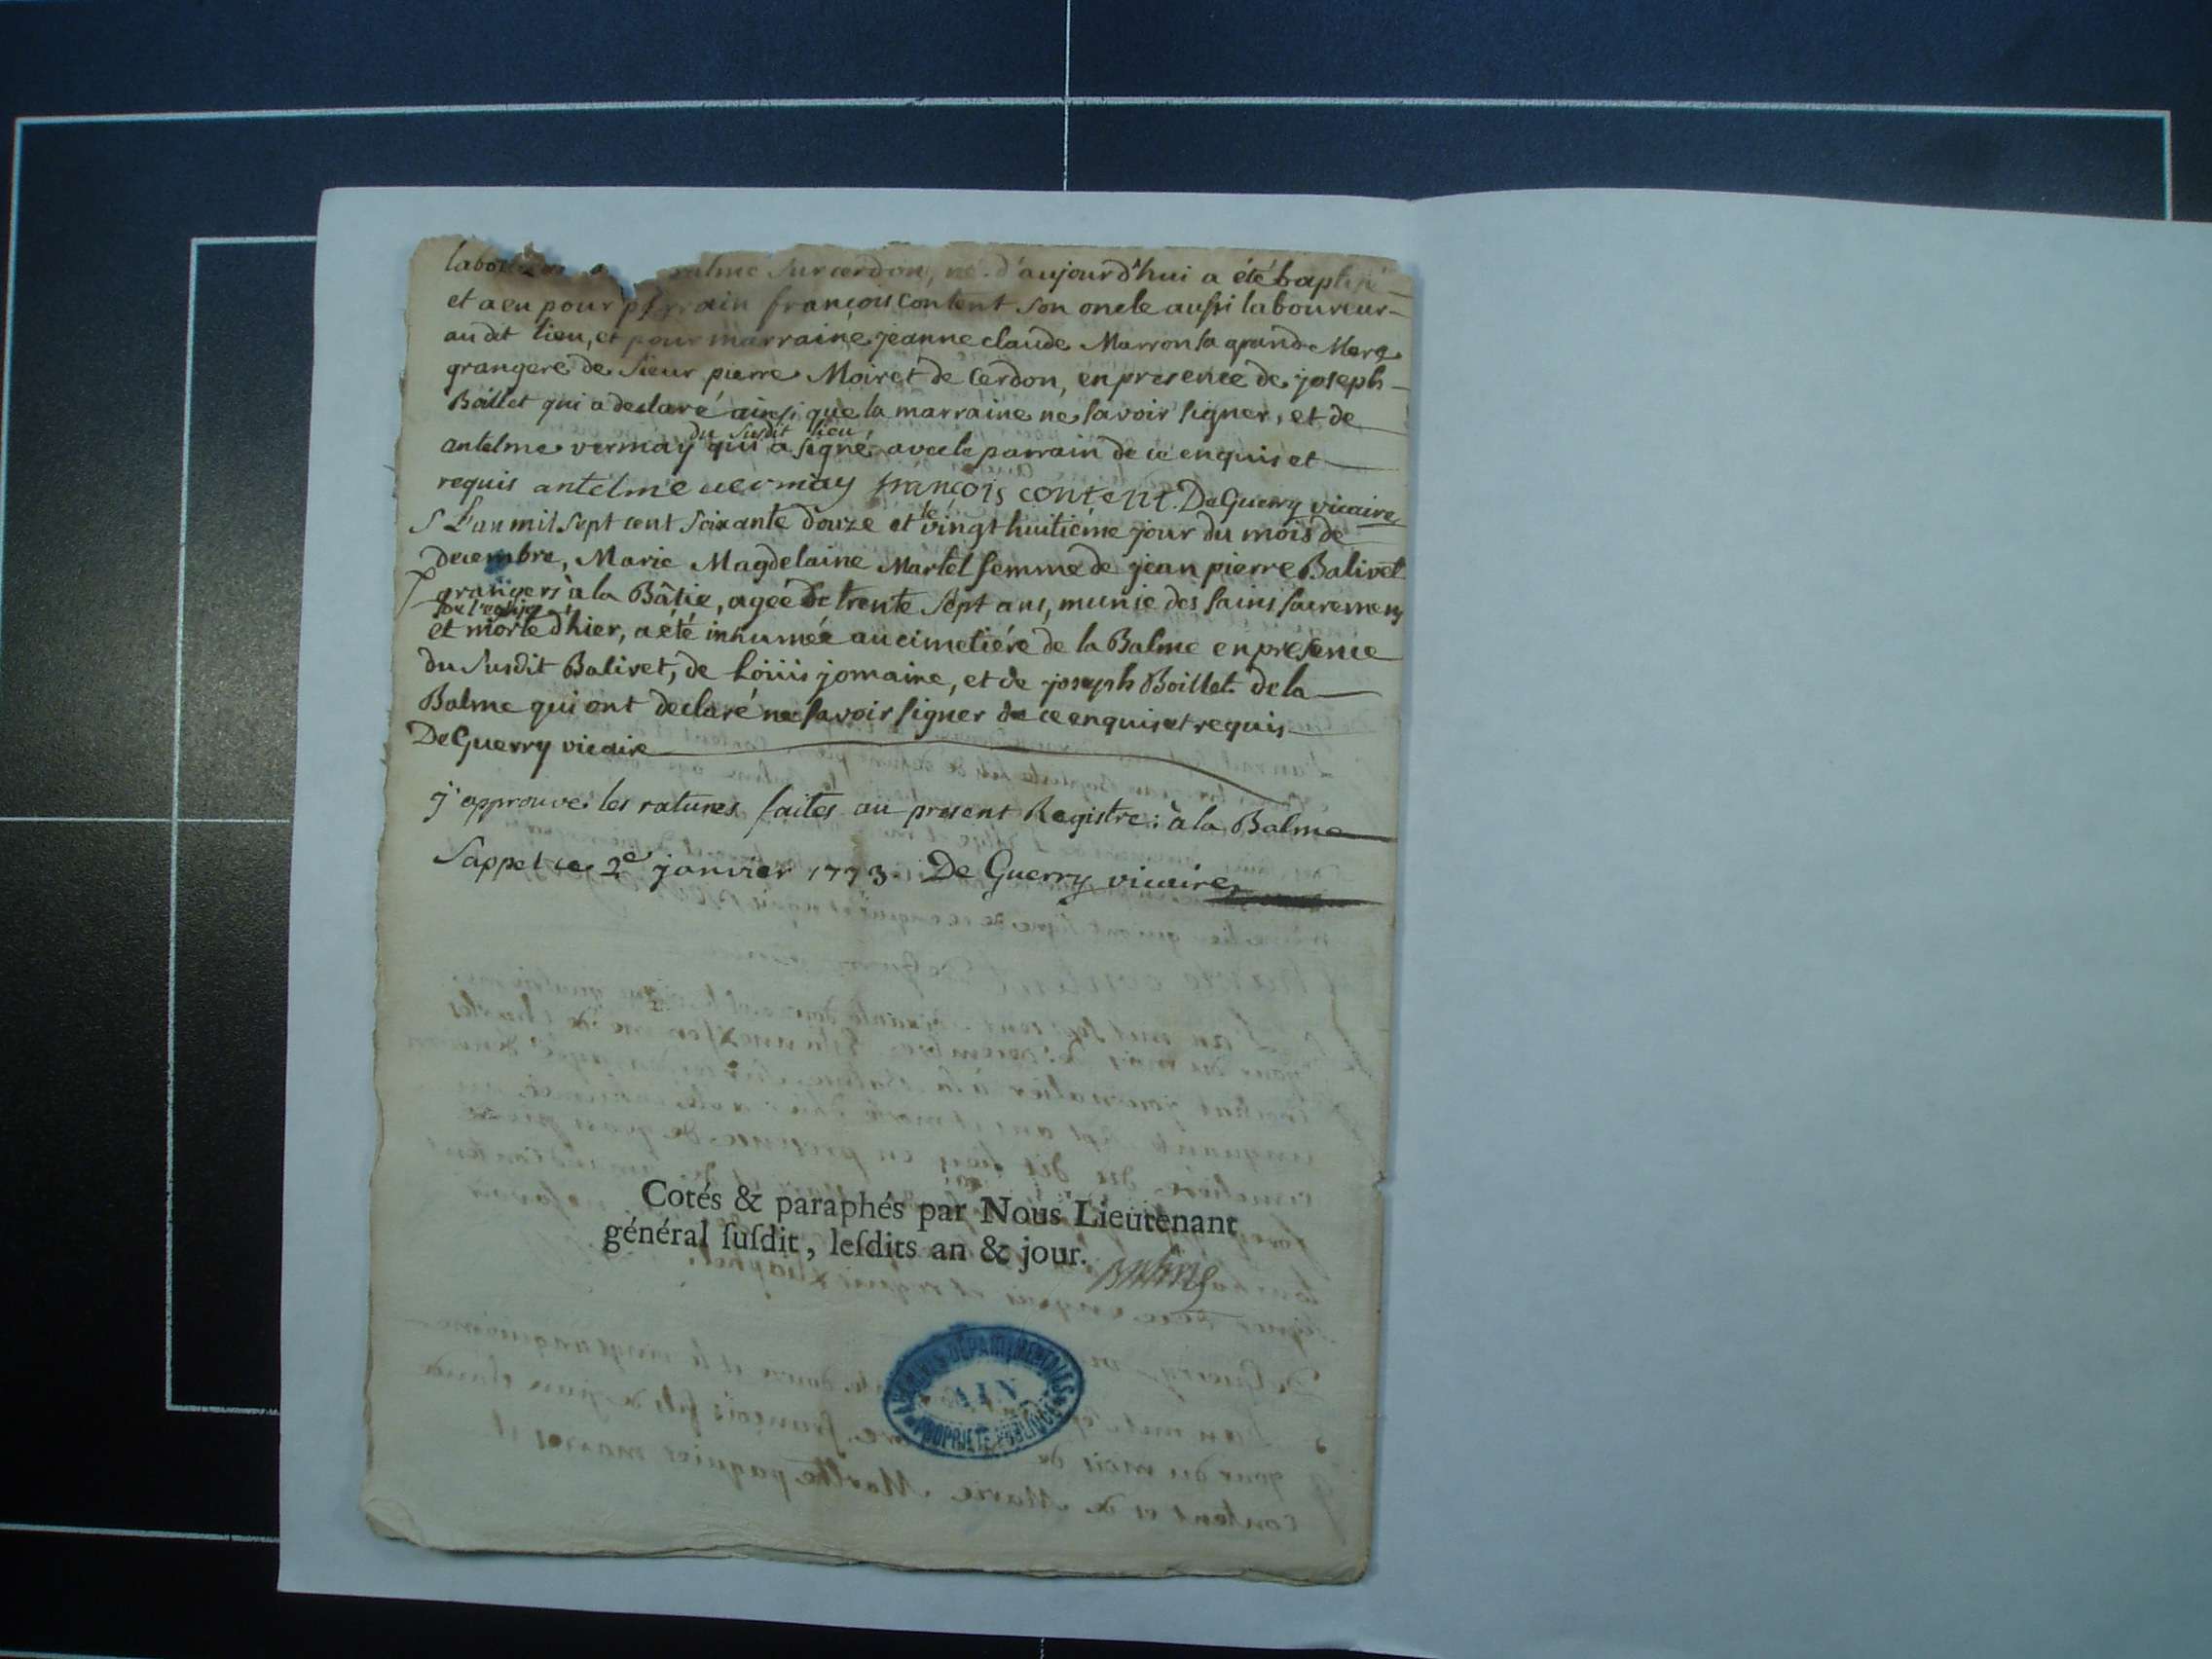 laboureurs a balme sur cerdon, né d'aujourd'hui a été baptisé
et a eu pour parrain françois Content son oncle aussi laboureur
au dit lieu, et pour marraine jeanne claude Marron sa grand Mere
grangere de Sieur pierre Moiret de Cerdon, en presence de joseph
Boillet qui a declaré ainsi que la marraine ne savoir signer, et de
du susdit lieu
antelme vermay qui a signé avec le parrain de ce enquis et
requis antelme uermay françois content. De Guerry vicaire
S L'an mil sept cent soixante douze et le vingt huitiéme jour du mois de
decembre, Marie Magdelaine Martel femme de jean pierre Balivet
grangers à la Bâtie, agée de trente sept ans, munie des sains sacremens
de l'eglise
et morte d'hier, a eté inhumée au cimetiére de la Balme en presence
du susdit Balivet, de Loüis jomaine, et de joseph Boillet de la
Balme qui ont declaré ne savoir signer de ce enquis et requis
De Guerry vicaire
j'approuve les ratures faites au present Registre: à la Balme
Sappel ce 2e janvier 1773. De Guerry vicaire
Cotés & paraphés par Nous Lieutenant
général ſuſdit, leſdits an & jour.
ARCHIVES DÉPARTEMENTALES
AIN
PROPRIÉTÉ PUBLIQUE